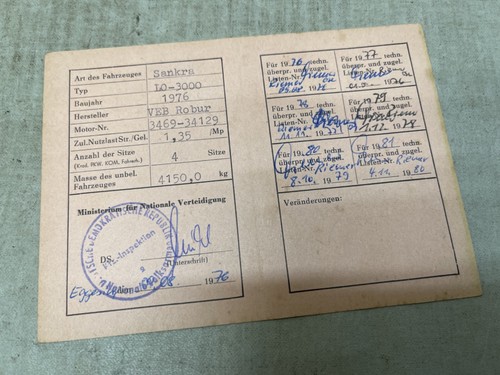 Art des Fahrzeuges Sankra
Typ LO-3000
Baujahr 1976
Hersteller VEB Robur
Motor-Nr. 3469-34129
Zul. Nutzlast Str./Gel. 1,35 /Mp
Anzahl der Sitze 4 Sitze
(Krad, PKW, KOM, Fahrsch.)
Masse des unbel. 4150,0 kg
Fahrzeuges
Ministerium für Nationale Verteidigung
DS.
(Unterschrift)
Kfz.-Inspektion
TSCHE DEMOKRATISCHE REPUBLIK
Nationale Volks
08 1976
Für 1976 techn.
überpr. und zugel.
Listen-Nr.
Riemer
Für 1977 techn.
überpr. und zugel.
Listen-Nr.
76
Für 1978 techn.
überpr. und zugel.
Listen-Nr.
Riemer
11.12.1977
Für 1979 techn.
überpr. und zugel.
Listen-Nr.
1.12.1978
Für 1980 techn.
überpr. und zugel.
Listen-Nr.
Riemer
8.10.1979
Für 1981 techn.
überpr. und zugel.
Listen-Nr. Riemer
4.12.1980
Veränderungen: